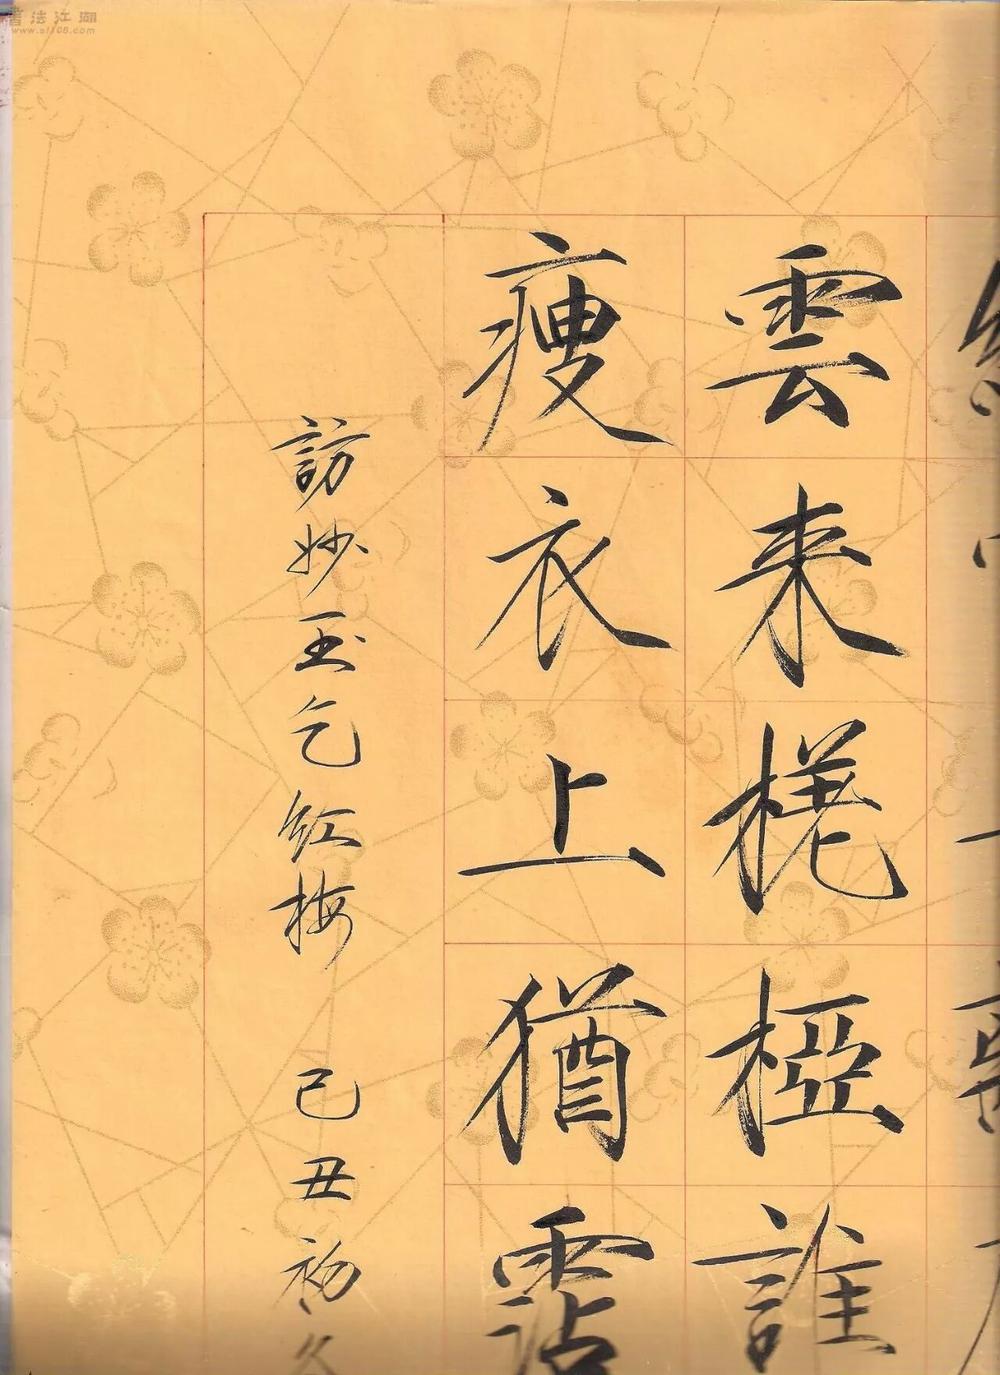 書法江湖
www.sf108.com
雲来槎椏誰
瘦衣上猶霑
訪妙玉乞紅梅 己丑初